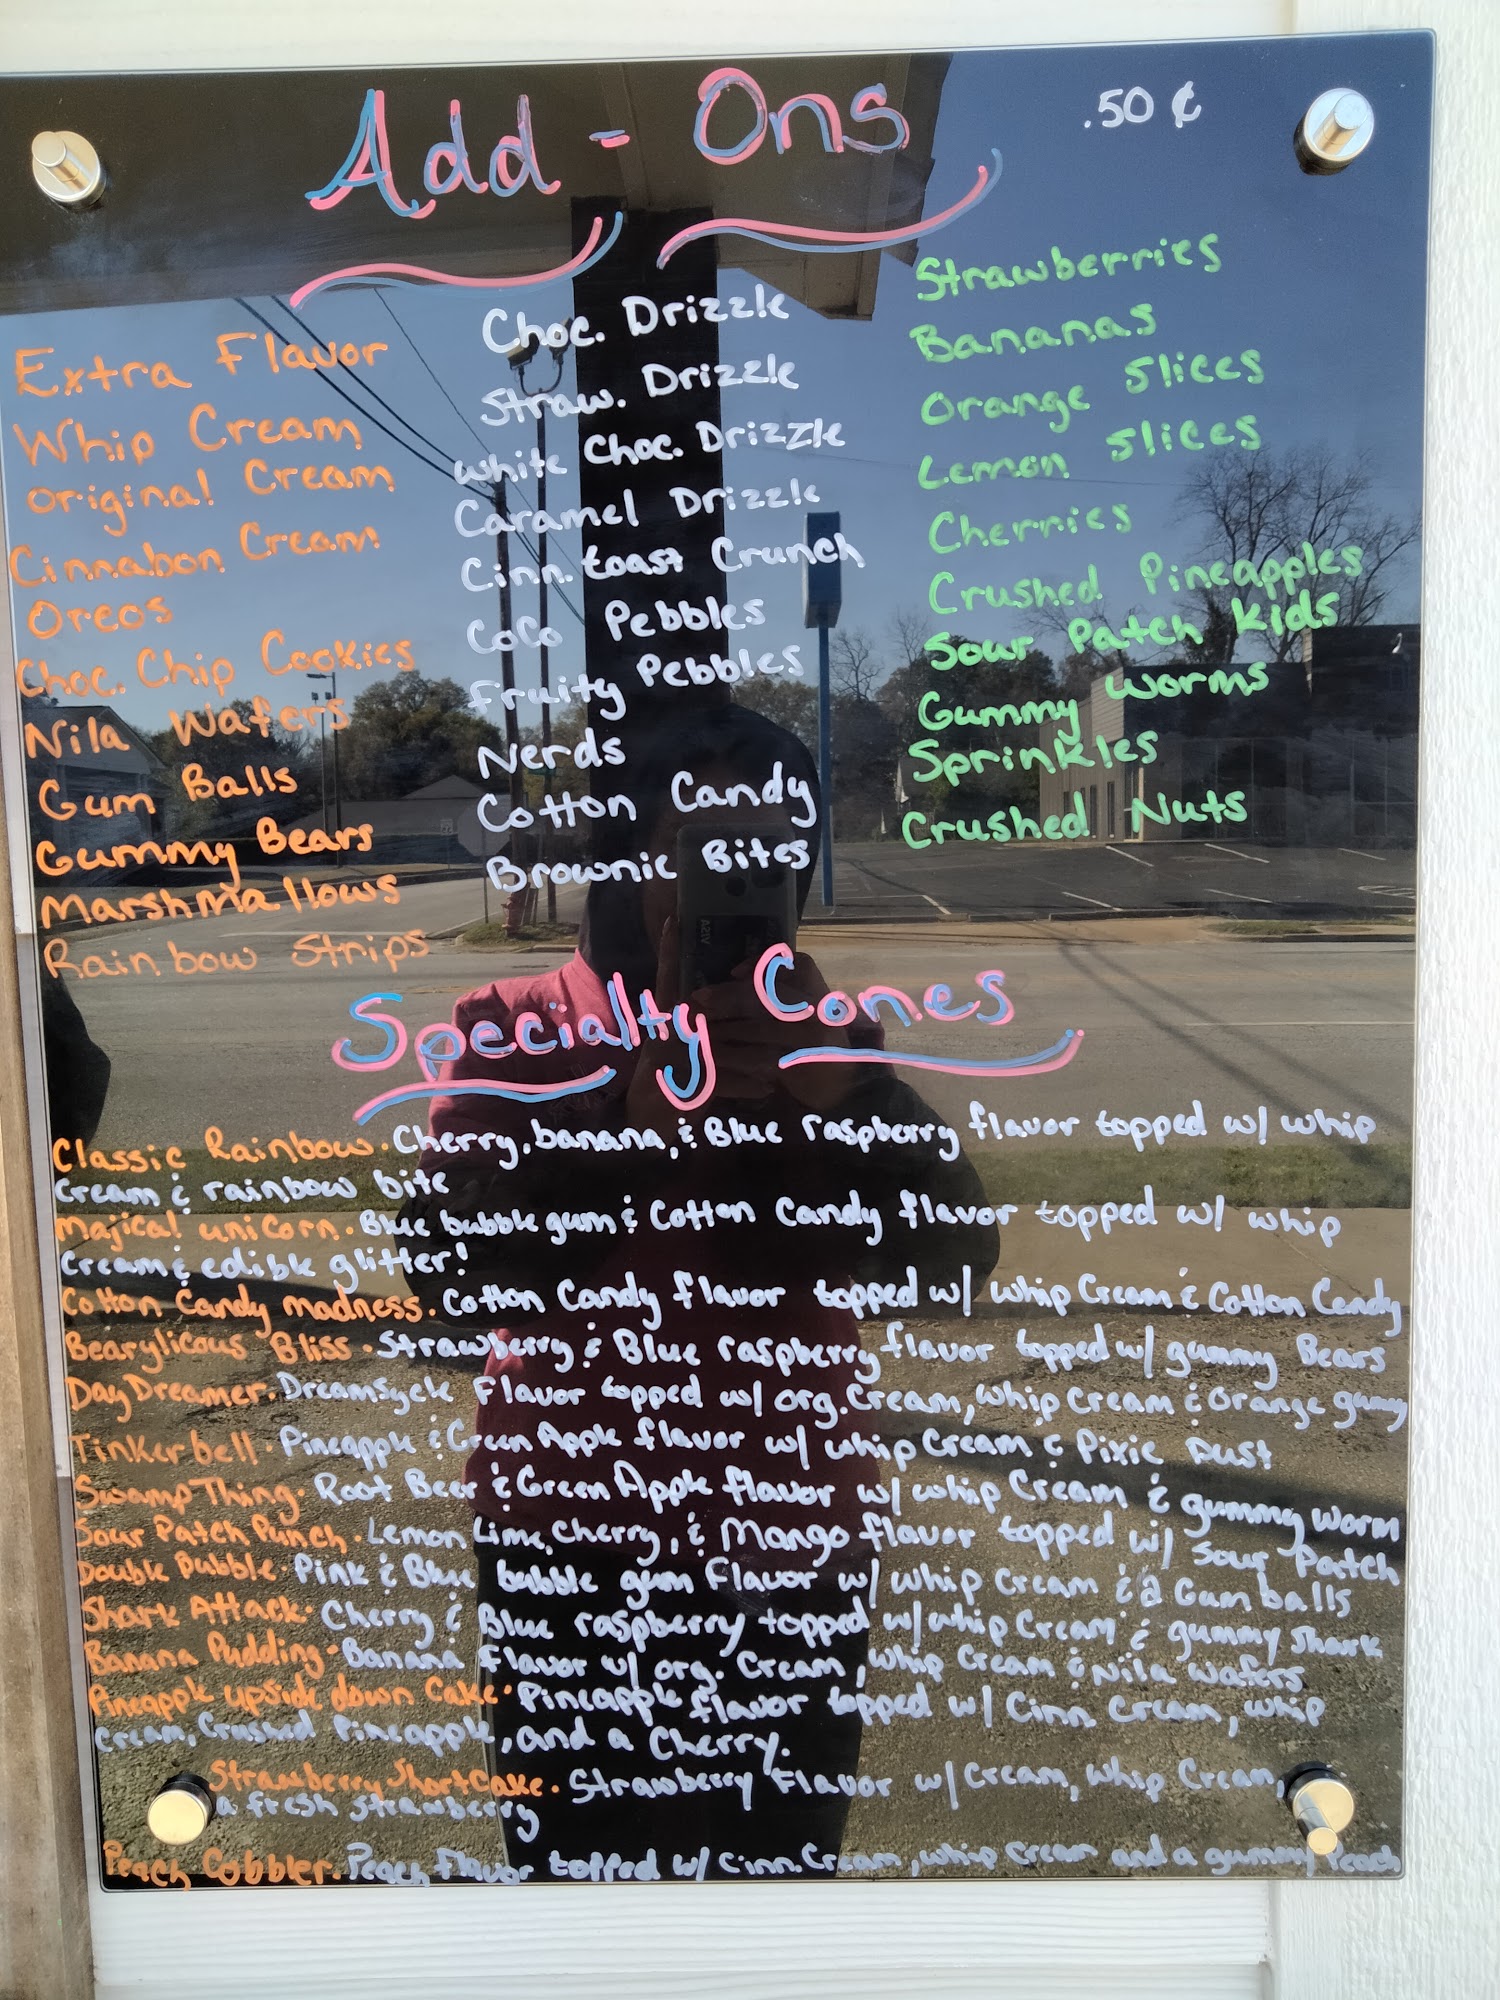 Add - Ons
.50 ¢
Extra Flavor
Whip Cream
Original Cream
Cinnabon Cream
Oreos
Choc. Chip Cookies
Nila Wafers
Gum Balls
Gummy Bears
Marshmallows
Rainbow Strips
Choc. Drizzle
Straw. Drizzle
White Choc. Drizzle
Caramel Drizzle
Cinn. toast Crunch
CoCo Pebbles
Fruity Pebbles
Nerds
Cotton Candy
Brownie Bites
Strawberries
Bananas
Orange Slices
Lemon Slices
Cherries
Crushed Pineapples
Sour Patch Kids
Gummy Worms
Sprinkles
Crushed Nuts
Specialty Cones
Classic Rainbow. Cherry, banana, & Blue raspberry flavor topped w/ whip
Cream & rainbow bite
Majical unicorn. Blue bubble gum & Cotton Candy flavor topped w/ whip
Cream & edible glitter!
Cotton Candy madness. Cotton Candy flavor topped w/ whip Cream & Cotton Candy
Bearylicous Bliss. Strawberry & Blue raspberry flavor topped w/ gummy Bears
Day Dreamer. Dreamsycle Flavor topped w/ org. Cream, whip Cream & orange gummy
Tinkerbell. Pineapple & Green Apple flavor w/ whip Cream & Pixie Dust
Swamp Thing. Root Beer & Green Apple flavor w/ whip Cream & gummy worm
Sour Patch Punch. Lemon Lime, Cherry, & Mango flavor topped w/ Sour Patch
Double Bubble. Pink & Blue bubble gum Flavor w/ whip Cream & 2 Gumballs
Shark Attack. Cherry & Blue raspberry topped w/ whip Cream & gummy shark
Banana Pudding. Banana Flavor w/ org. Cream, whip Cream & Nila wafers
Pineapple upside down Cake. Pineapple flavor topped w/ Cinn. Cream, whip
Cream, Crushed Pineapple, and a Cherry.
Strawberry ShortCake. Strawberry Flavor w/ Cream, whip Cream,
a fresh strawberry
Peach Cobbler. Peach Flavor topped w/ Cinn. Cream, whip Cream and a gummy Peach